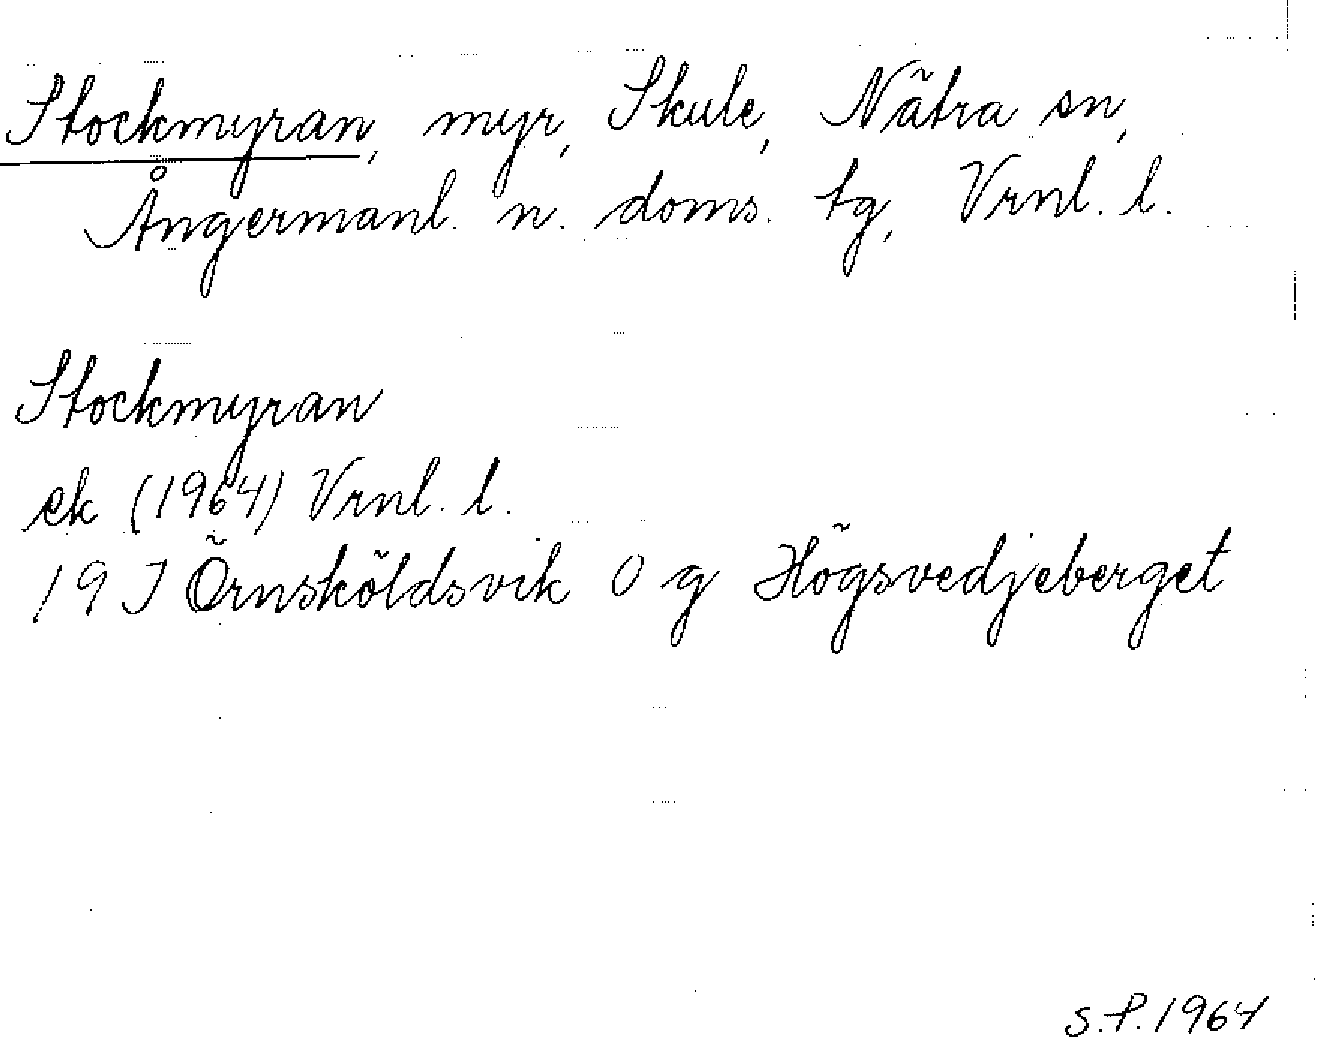 Stockmyran, myr, Skule, Nätra sn,
Ångermanl. n. doms. tg, Vrnl. l.
Stockmyran
ek (1964) Vrnl. l.
19 J Örnsköldsvik 0 g Högsvedjeberget
S.P. 1964